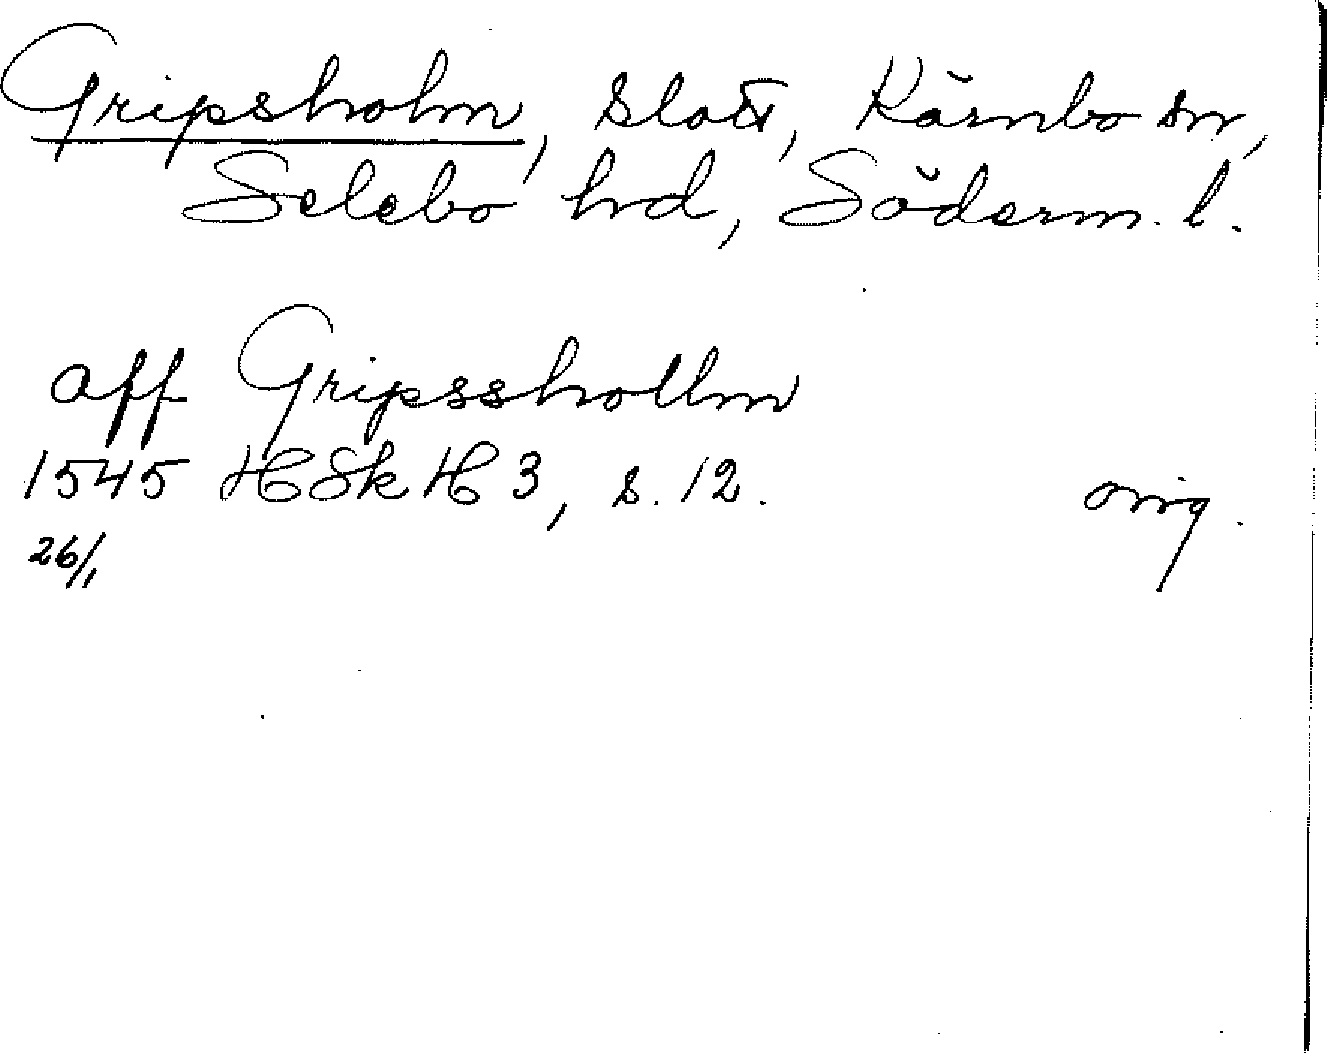 Gripsholm, slott, Kärnbo sn,
Selebo hd, Söderm. l.
aff Gripsshollm
1545 HSkH 3, s. 12. orig.
26/1